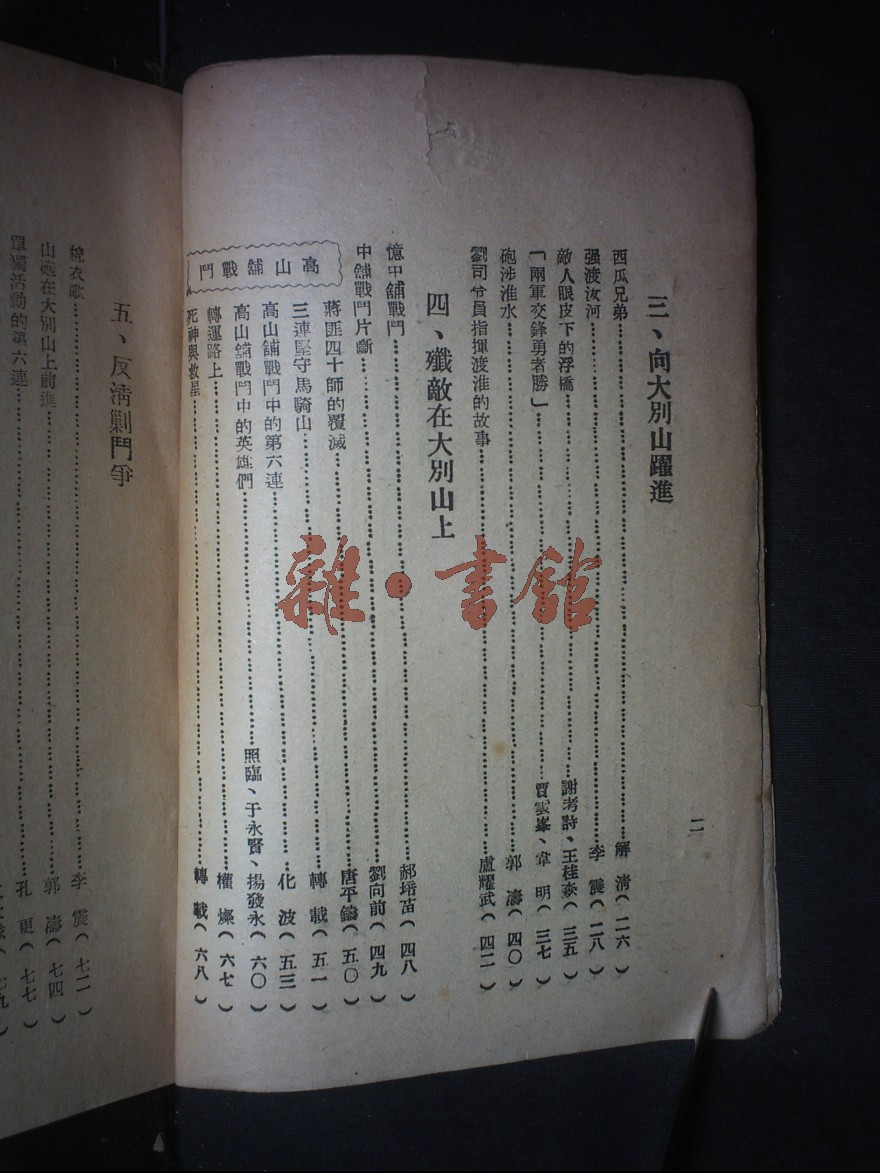 二
三、向大別山躍進
西瓜兄弟……解 清(二六)
强渡汝河……李 震(二八)
敵人眼皮下的浮橋……謝考詩、王桂(三五)
「兩軍交鋒勇者勝」……賈雲峯、韋 明(三七)
砲涉淮水……郭 濤(四〇)
劉司令員指揮渡淮的故事……盧耀武(四二)
四、殲敵在大別山上
憶中舖戰鬥……郝培苗(四八)
中舖戰鬥片斷……劉向前(四九)
高山舖戰鬥
蔣匪四十師的覆滅……唐平鑄(五〇)
三連堅守馬騎山……轉 載(五一)
高山舖戰鬥中的第六連……化 波(五三)
高山舖戰鬥中的英雄們……照臨、于永賢、揚發永(六〇)
轉運路上……權 燦(六七)
死神與救星……轉 載(六八)
五、反清剿鬥爭
棉衣歌……李 震(七二)
山砲在大別山上前進……郭 濤(七四)
單獨活動的第六連……孔 更(七七)
雜·書館